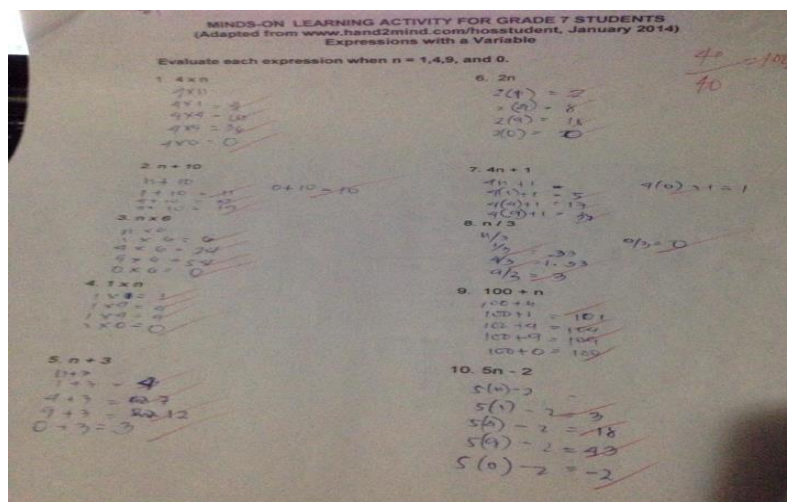 MINDS-ON LEARNING ACTIVITY FOR GRADE 7 STUDENTS
(Adapted from www.hand2mind.com/hosstudent, January 2014)
Expressions with a Variable
40
40
Evaluate each expression when n = 1,4,9, and 0.
1. 4 x n
4xn
4x1 = 4
4x4 =
4x9 = 36
4x0 = 0
2. n + 10
n + 10
1 + 10 = 11
0+10 = 10
3. n x 6
n x 6
1 x 6 = 6
4 x 6 = 24
9 x 6 = 54
0 x 6 = 0
4. 1 x n
1 x 1 = 1
1 x 0 = 0
5. n + 3
n+3
1 + 3 = 4
4 + 3 = 7
9 + 3 = 12
0 + 3 = 3
6. 2n
2(1) = 2
2(4) = 8
2(9) = 18
2(0) = 0
7. 4n + 1
4n + 1 =
4(1)+1 = 5
4(4)+1 = 17
4(9)+1 = 37
4(0)+1 = 1
8. n / 3
n/3
1/3 = .33
4/3 = 1.33
9/3 = 3
0/3 = 0
9. 100 + n
100+n
100+1 = 101
100+4 = 104
100+9 = 109
100+0 = 100
10. 5n - 2
5(n)-2
5(1) - 2 = 3
5(4) - 2 = 18
5(9) - 2 = 43
5(0) - 2 = -2